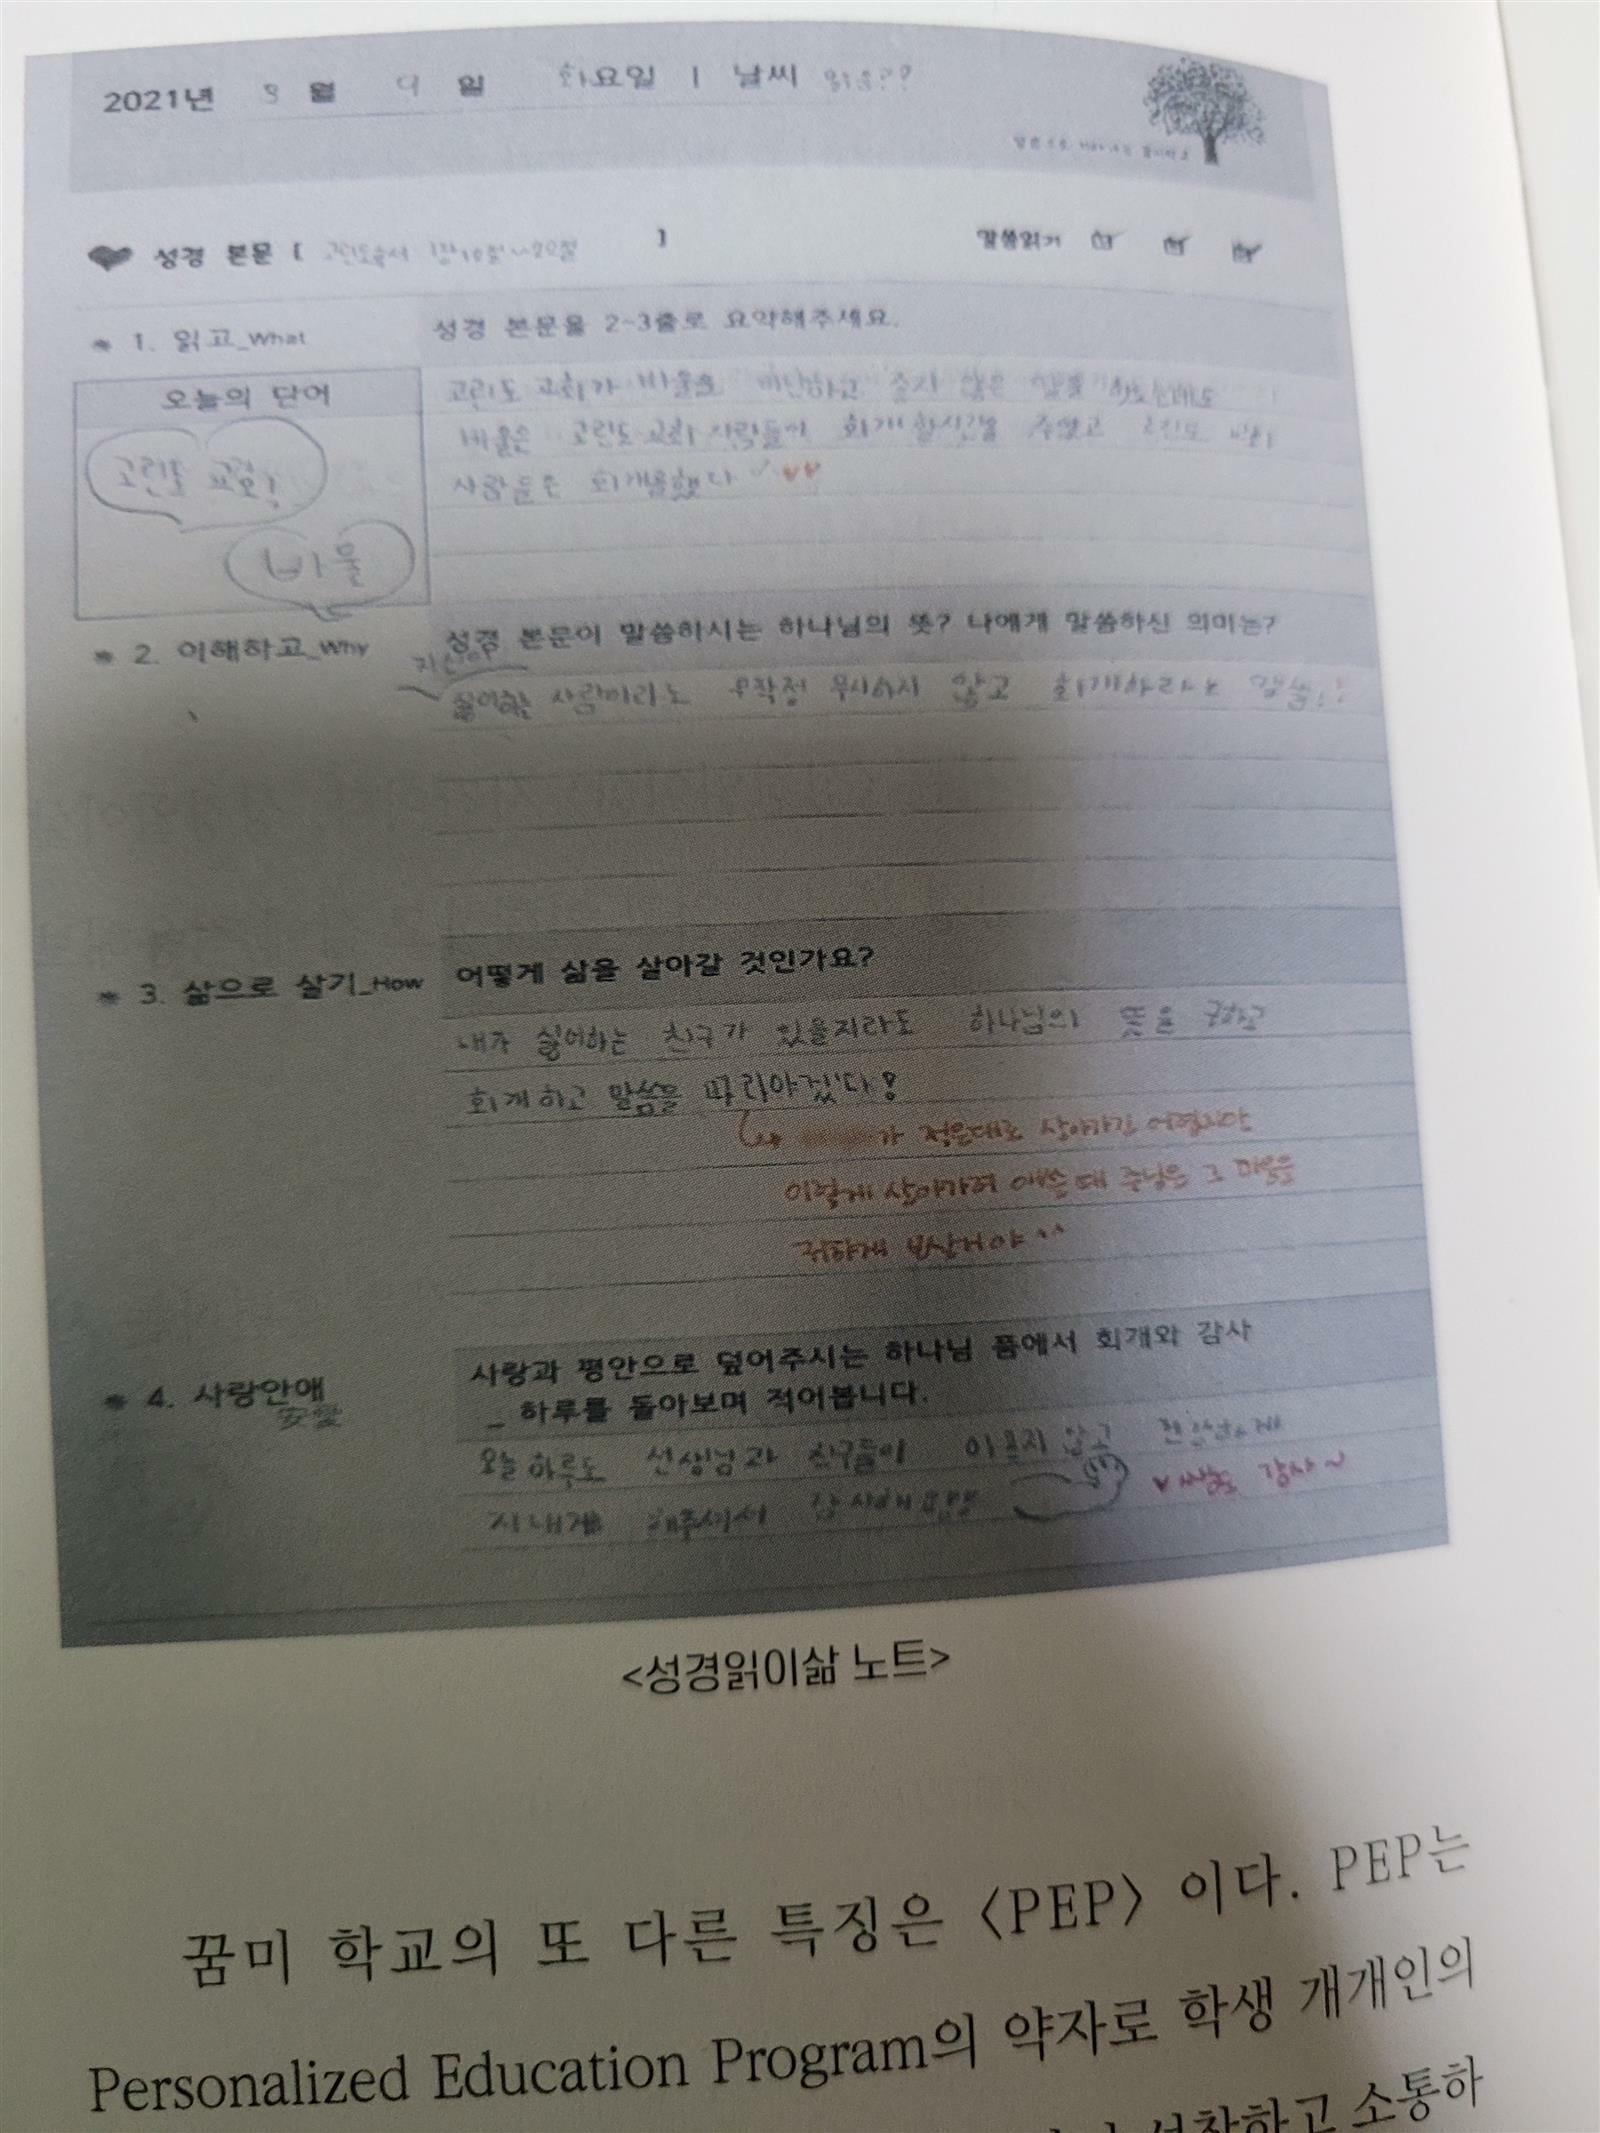 2021년 3월 9일 화요일 | 날씨
성경 본문 [ 고린도후서 1장 10절~20절 ] 말씀읽기
* 1. 읽고_What
성경 본문을 2~3줄로 요약해주세요.
오늘의 단어
고린도 교회
바울
고린도 교회가 바울을 비난하고 좋지 않은 말을 했는데도
바울은 고린도 교회 사람들이 회개할시간을 주었고 고린도 교회
사람들은 회개를했다
* 2. 이해하고_Why
성경 본문이 말씀하시는 하나님의 뜻? 나에게 말씀하신 의미는?
자신이
싫어하는 사람이라도 무작정 무시하지 않고 회개하라 말씀!
* 3. 삶으로 살기_How
어떻게 삶을 살아갈 것인가요?
내가 싫어하는 친구가 있을지라도 하나님의 뜻을 구하고
회개하고 말씀을 따라야겠다!
가 적은대로 살아가긴 어렵지만
이렇게 살아가려 애쓸 때 주님은 그 마음을
* 4. 사랑안애
安愛
사랑과 평안으로 덮어주시는 하나님 품에서 회개와 감사
_ 하루를 돌아보며 적어봅니다.
오늘 하루도 선생님과 친구들이 아프지 않고 안전하게
지내게 해주셔서 감사해요
쌤도 감사~
<성경읽이삶 노트>
꿈미 학교의 또 다른 특징은 〈PEP〉 이다. PEP는
Personalized Education Program의 약자로 학생 개개인의
성찰하고 소통하